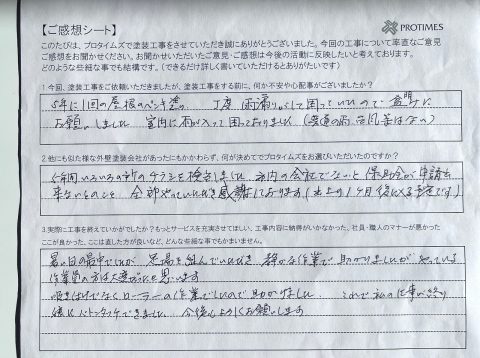 【ご感想シート】
PROTIMES
このたびは、プロタイムズで塗装工事をさせていただき誠にありがとうございました。今回の工事について率直なご意見
ご感想をお聞かせください。お聞かせいただいたご意見・ご感想は今後の活動に反映したいと考えております。
どのような些細な事でも結構です。(できるだけ詳しく書いていただけるとありがたいです)
1.今回、塗装工事をご依頼いただきましたが、塗装工事をする前に、何か不安や心配事がございましたか?
5年に1回の屋根のペンキ塗り 丁度 雨漏りがして困っていたので 専門に
お願いしました 室内に雨が入って困っておりました
2.他にも似た様な外壁塗装会社があったにもかかわらず、何が決めてでプロタイムズをお選びいただいたのですか?
5年間いろいろの新聞チラシを検討しました 市内の会社でないと 保助金が申請出
来ないとのこと 全部やっていただき感謝しております
3.実際に工事を終えていかがでしたか?もっとサービスを充実させてほしい、工事内容に納得がいかなかった、社員・職人のマナーが悪かった
ここが良かった、ここは直した方が良いなど、どんな些細な事でもかまいません。
暑い日の最中でしたが 足場を組んでいただき 静かな作業で 助かりましたが やっている
作業員の方は大変だったと思います
吹きつけでなくローラーの作業でしたので助かりました これで私の仕事も終り
娘にバトンタッチできました 今後もよろしくお願いします